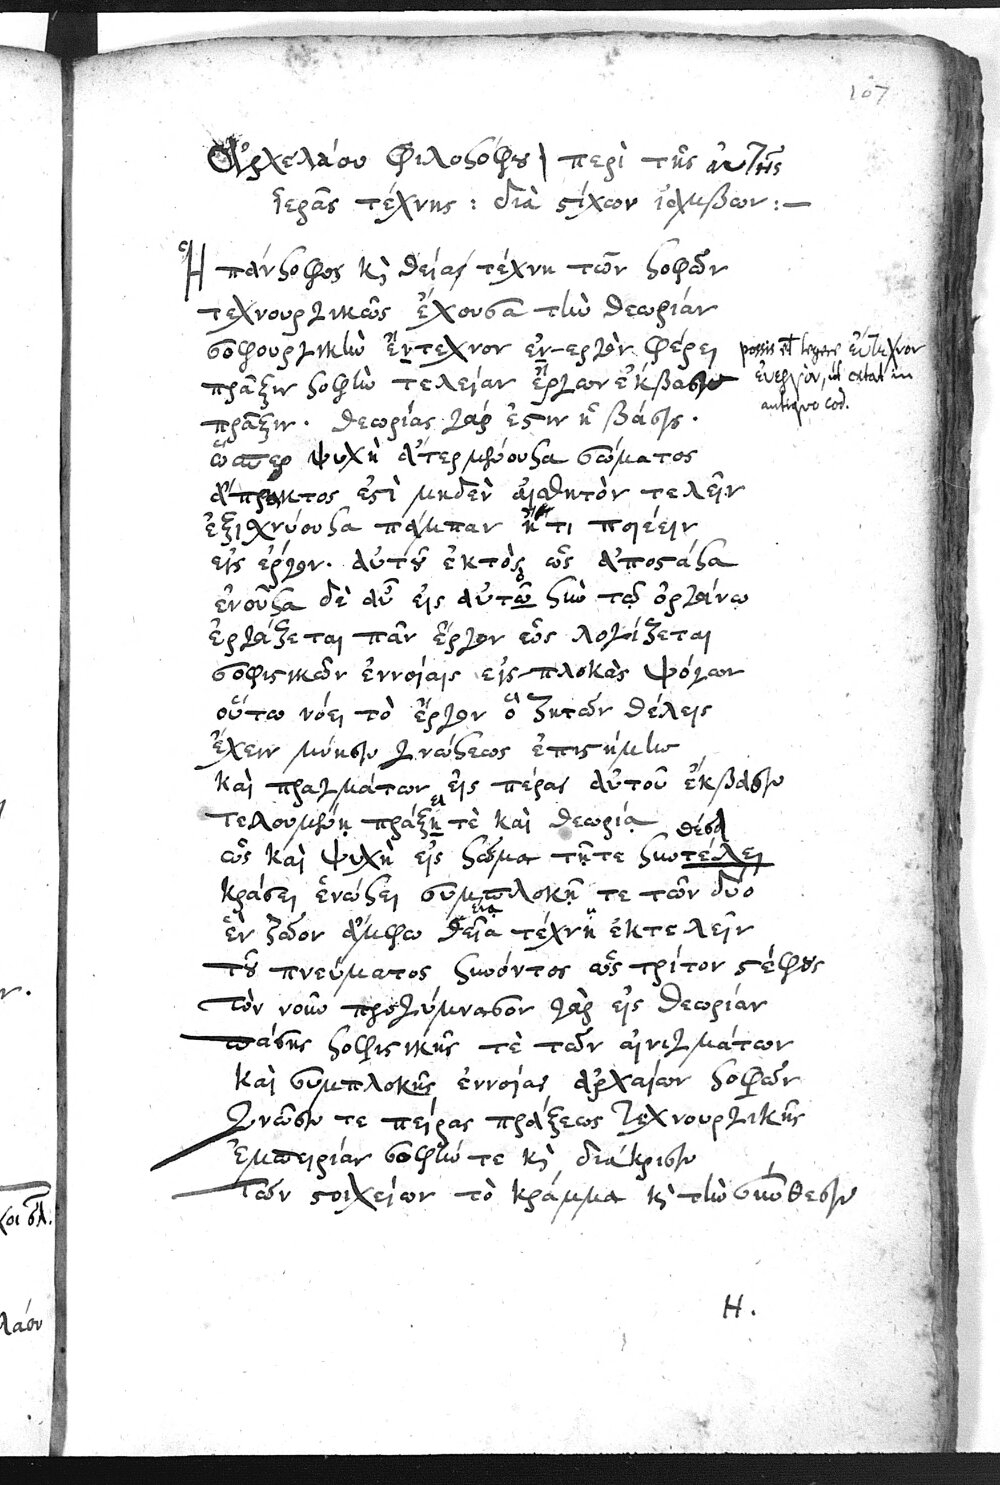 107
Ἀρχελάου φιλοσόφου περὶ τῆς αὐτῆς
ἱερᾶς τέχνης : διὰ στίχων ἰάμβων :—
Ἡ πάνσοφος κὶ θεία τέχνη τῶν σοφῶν
τεχνουργικῶς ἔχουσα τὴν θεωρίαν
σοφουργικὴν ἔντεχνον ἐν-εργὸν φέρει
possis et legere εὔτεχνον
πρᾶξιν σοφὴν τελείαν ἔργων ἔκβασιν
ἐνεργὸν, ut erat in
antiquo cod.
πρᾶξιν. θεωρίας γάρ ἐστιν ἡ βάσις.
ὥσπερ ψυχὴ ἄτερ μένουσα σώματος
ἄπρακτος ἐστὶ μηδὲν αἰσθητὸν τελεῖν
ἐξισχνύουσα πάμπαν ἤτι ποιέειν
εἰς ἔργον. αὐτοῦ ἐκτὸς ὡς ἀποστᾶσα
ἑνοῦσα δὲ αὖ εἰς αὐτὼ σὺν τῷ ὀργάνῳ
ἐργάζεται πᾶν ἔργον ὡς λογίζεται
σοφιστικῶν ἐννοίαις εἰς-πλοκὰς ψόγων
οὕτω νόει τὸ ἔργον ὃ ζητῶν θέλεις
ἔχειν μύησιν γνώσεως ἐπιστήμην
καὶ πραγμάτων εἰς πέρας αὐτοῦ ἔκβασιν
τελουμένη πράξῃ τὲ καὶ θεωρίᾳ
θέσῃ
ὡς καὶ ψυχὴ εἰς σῶμα τῆτε συντέλει
κράσει ἑνώσει συμπλοκῇ τε τῶν δύο
ἓν ζῶον ἄμφω θεῖα τέχνη ἐκτελεῖν
τοῦ πνεύματος συνόντος ὡς τρίτον στέφους
τὸν νοῦν προγύμνασον γὰρ εἰς θεωρίαν
πάσης σοφιστικῆς τὲ τῶν αἰνιγμάτων
καὶ συμπλοκῆς ἐννοίας ἀρχαίων σοφῶν
γνῶσιν τε πείρας πράξεως τεχνουργικῆς
ἐμπειρίαν σοφὴν τε κὶ διάκρισιν
τῶν στοιχείων τὸ κράμμα κὶ τὴν σύνθεσιν
Η.